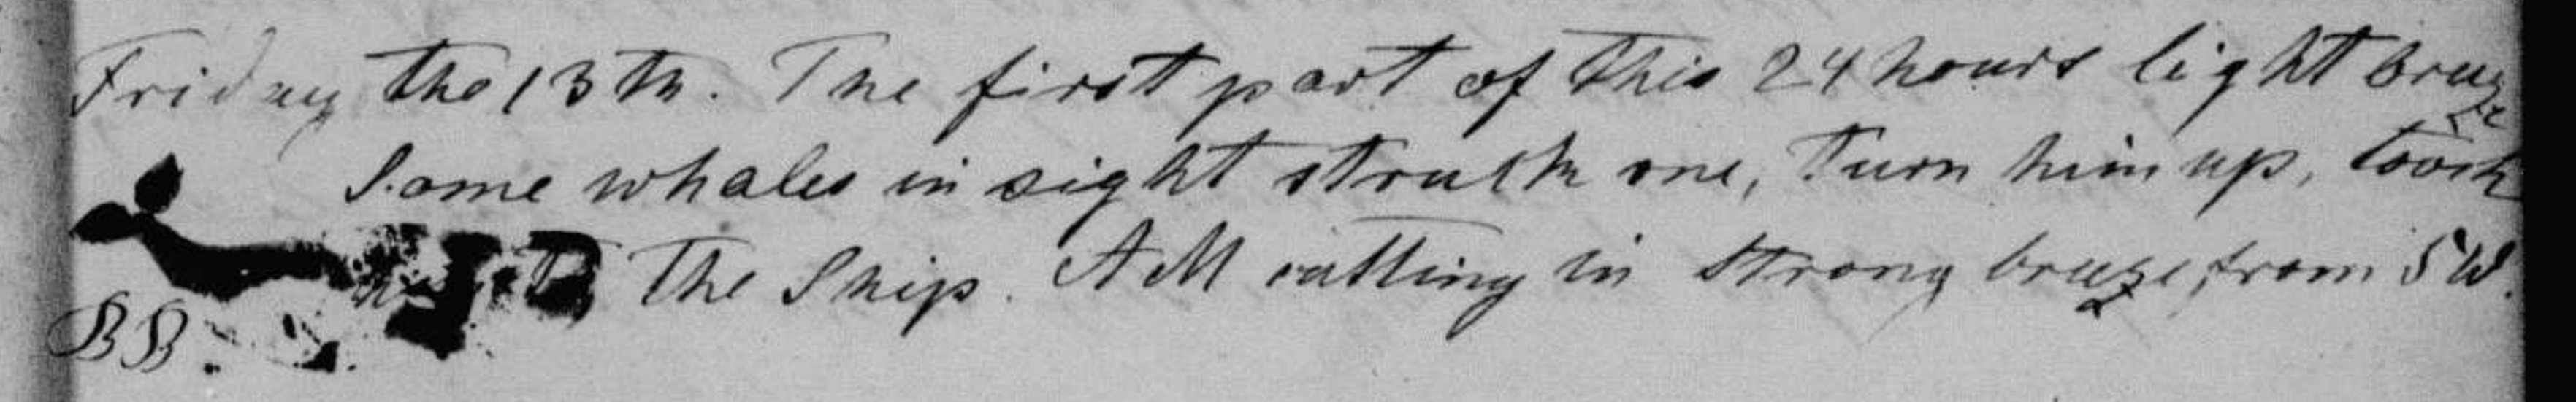 Friday the 13th. The first part of this 24 hours light breeze
Some whales in sight struck one, Turn him up, took
the Ship. AM cutting in strong breeze from SW.
BB